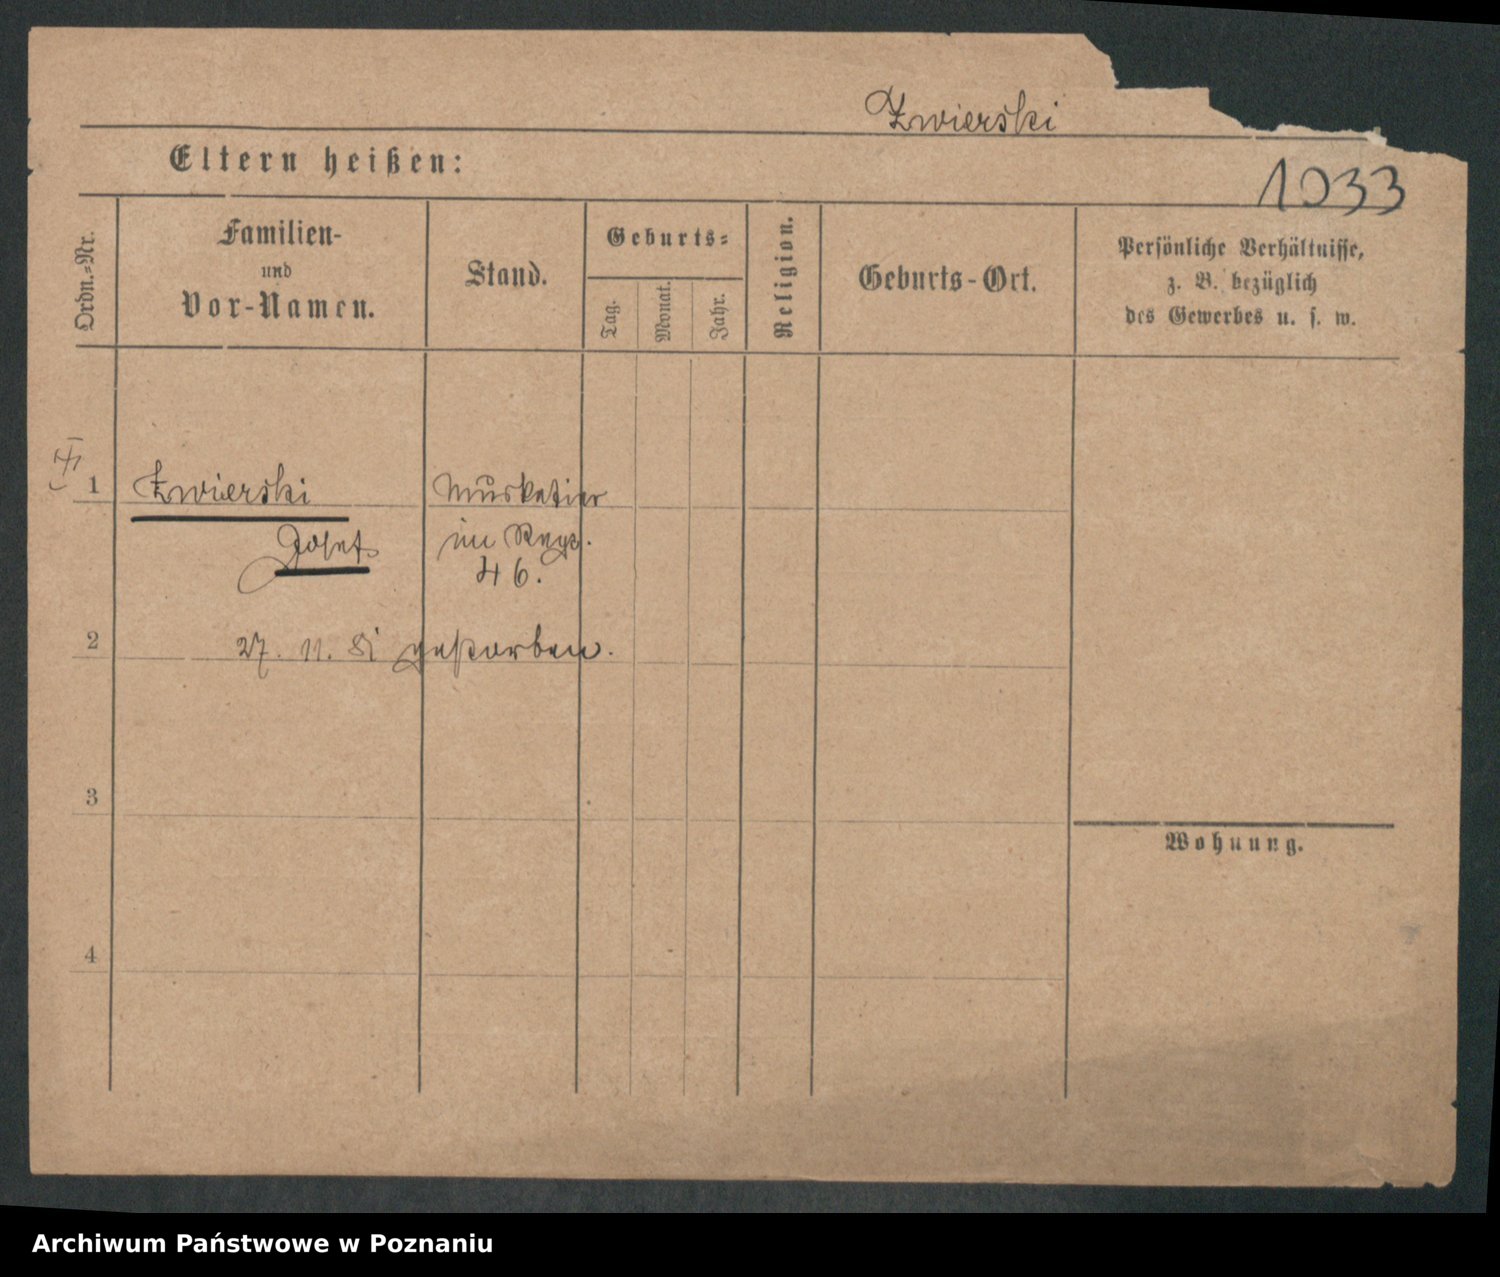 Zwierski
Eltern heißen:
1033
Ordn.=Nr.
Familien-
und
Vor-Namen.
Stand.
Geburts=
Tag.
Monat.
Jahr.
Religion.
Geburts-Ort.
Persönliche Verhältnisse,
z. B. bezüglich
des Gewerbes u. s. w.
1
Zwierski
Josef
Musketier
im Regt.
46.
2
27. 11. 81 gestorben.
3
Wohnung.
4
Archiwum Państwowe w Poznaniu